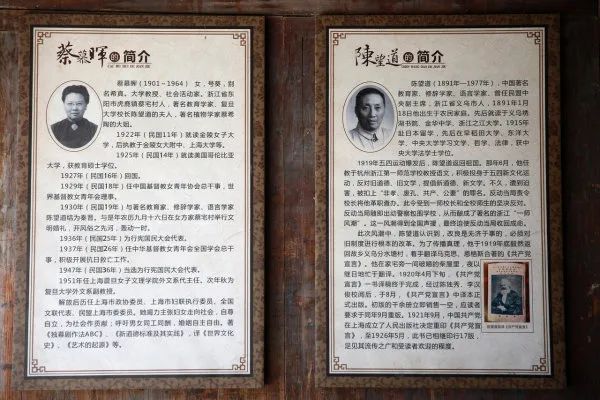 蔡慕暉的简介
CAI MU HUI DE JIAN JIE
蔡慕晖（1901－1964） 女，号葵，别
名希真。大学教授、社会活动家。浙江省东
阳市虎鹿镇蔡宅村人，著名教育学家、复旦
大学校长陈望道的夫人，著名植物学家蔡希
陶的大姐。
1922年（民国11年）就读金陵女子大
学，后执教于金陵女大附中、上海大学等。
1925年（民国14年）就读美国哥伦比亚
大学，获教育硕士学位。
1927年（民国16年）回国。
1929年（民国18年）任中国基督教女青年协会总干事，世
界基督教女青年会理事。
1930年（民国19年）与著名教育家、修辞学家、语言学家
陈望道结为妾否。与是年农历九月十六日在女方家蔡宅村举行文
明婚礼，开风俗之先河，轰动一时。
1936年（民国25年）为行宪国民大会代表。
1937年（民国26年）任中华基督教女青年会全国学会总干
事，积极开展抗日救亡工作。
1947年（民国36年）当选为行宪国民大会代表。
1951年任上海震旦女子文理学院外文系代主任、次年秋为
复旦大学外文系副教授。
解放后历任上海市政协委员、上海市妇联执行委员、全国
文联代表、民盟上海市委委员。她竭力主张妇女走向社会，自尊
自立，为社会作贡献；呼吁男女同工同酬，婚姻自主自由。著
《独幕剧作法ABC》、《新道德标准及其实践》，译《世界文化
史》、《艺术的起源》等。
陳望道的简介
CHEN WANG DAO DE JIAN JIE
陈望道（1891年—1977年），中国著名
教育家、修辞学家、语言学家，曾任民盟中
央副主席，浙江省义乌市人，1891年1月
18日他出生于农民家庭。先后就读于义乌绣
湖书院、金华中学、浙江之江大学。1915年
赴日本留学，先后在早稻田大学、东洋大
学、中央大学学习文学、哲学、法律，获中
央大学法学士学位。
1919年五四运动爆发后，陈望道返回祖国。那年6月，他任
教于杭州浙江第一师范学校教授语文，积极投身于五四新文化运
动，反对旧道德、旧文学，提倡新道德、新文学。不久，遭到迫
害，被扣上“非孝、废孔、共产、公妻”的罪名。反动当局责令
校长将他革职查办。此令受到一师校长和全校师生的坚决反对。
反动当局随即出动警察包围学校，从而酿成了著名的浙江“一师
风潮”。这一风潮得到全国声援，最终迫使反动当局收回成命。
此次风潮中，陈望道认识到，改良是无济于事的，必须对
旧制度进行根本的改革。为了传播真理，他于1919年底毅然返
回故乡义乌分水塘村，着手翻译马克思、恩格斯合著的《共产党
宣言》。他在家宅旁一间破陋的柴屋里，夜以
继日地忙于翻译。1920年4月下旬，《共产党
宣言》一书译稿终于完成，经过陈独秀、李汉
俊校阅后，于8月，《共产党宣言》中译本正
式出版。初版的千余册立即销售一空，应读者
要求于同年9月重版。1921年9月，中国共产党
在上海成立了人民出版社决定重印《共产党宣
言》，至1926年5月，此书已相继印行17版，
足见其流传之广和受读者欢迎的程度。